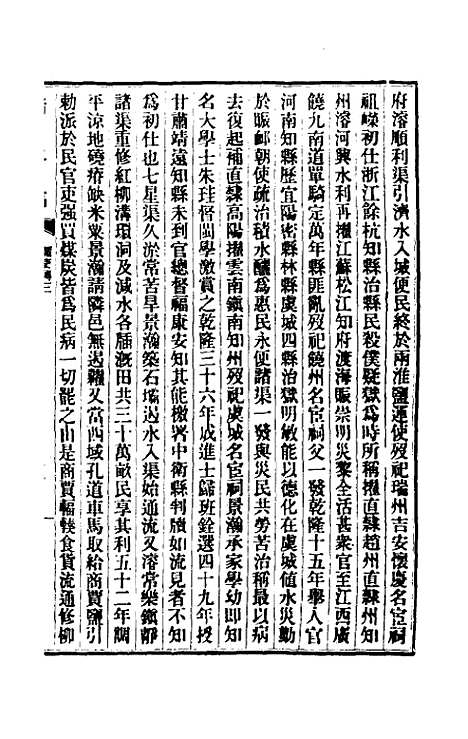 府濬順利渠引濟水入城便民終於兩淮鹽運使歿祀瑞州吉安懷慶名宦祠
祖嶸初仕浙江餘杭知縣治縣民殺僕疑獄爲時所稱擢直隸趙州直隸州知
州濬河興水利再擢江蘇松江知府渡海賑崇明災黎全活甚衆官至江西廣
饒九南道單騎定萬年縣匪亂歿祀饒州名宦祠父一發乾隆十五年舉人官
河南知縣歷宜陽密縣林縣虞城四縣治獄明敏能以德化在虞城値水災勤
於賑邮朝使疏治積水釃爲惠民永便諸渠一發與災民共勞苦治稱最以病
去復起補直隸高陽擢雲南鎭南知州歿祀虞城名宦祠景瀚承家學幼即知
名大學士朱珪督閩學激賞之乾隆三十六年成進士歸班銓選四十九年授
甘肅靖遠知縣未到官總督福康安知其能檄署中衞縣判牘如流見者不知
爲初仕也七星渠久淤常苦旱景瀚築石壩遏水入渠始通流又濬常樂鎭靜
諸渠重修紅柳溝環洞及減水各牐漑田共三十萬畝民享其利五十二年調
平涼地磽瘠缺米粟景瀚請隣邑無遏糴又當西域孔道車馬取給商賈鹽引
勅派於民官吏强買煤炭皆爲民病一切罷之由是商賈輻輳食貨流通修柳